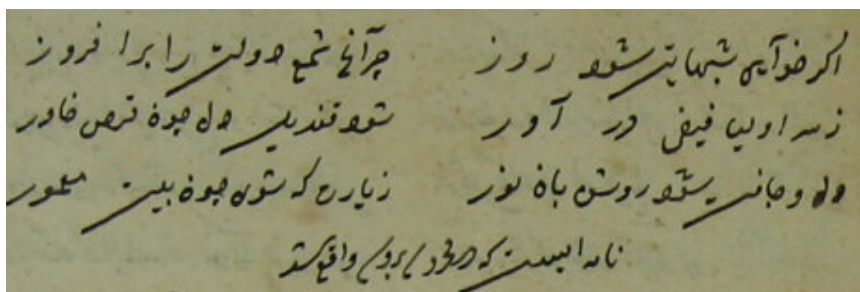 اگر خواهی شبهایت شود روز چراغ شمع دولت را برافروز
ز اولیا فیض در آور شود قندیل دل چون قرص خاور
دل و جانت شود روشن بآن نور زیارت که شود چون بیت معمور
نامه ایست که واقع شد